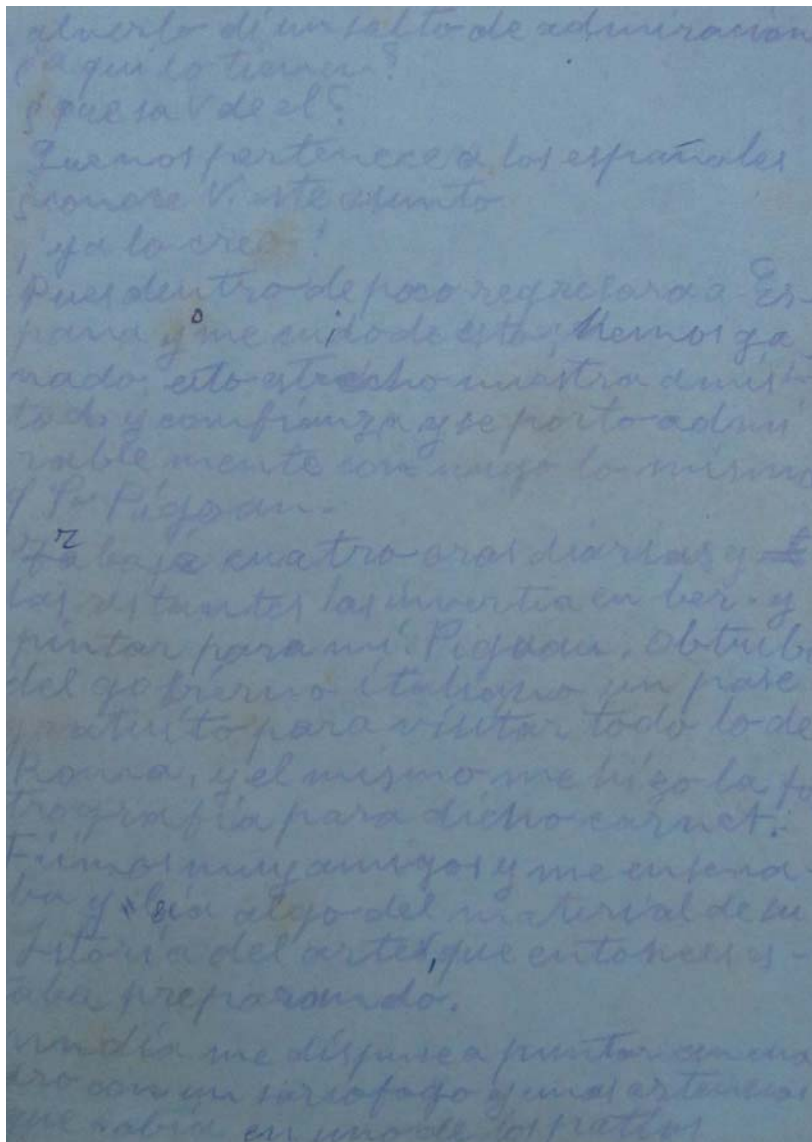 alverlo di un salto de admiración
¿aqui lo tienen?
¿que sa V de el?
Que nos pertenece a los españoles
¿conose V. este asunto
¡ya lo creo!
Pues dentro de poco regresara a Es-
pana yo me cuido de esto; Hemos ga
nado, esto estrecho nuestra amis-
tad y comfianza y se porto admi
rable mente con migo lo mismo
q Pigoan.-
Trabajé cuatro oras diarias y
las restantes las invertia en ber y
pintar para mi. Piguau, obtubo
del gobierno italiano un pase
gratuito para visitar todo lo de
Roma, y el mismo me hizo la fo
tografia para dicho carnet.
Fuimos muy amigos y me ensena-
ba y leia algo del material de su
Istoria del arte, que entonces es-
taba preparando.
un dia me dispuse a pintar un cua
dro con un sarcofago y unas
que habia en uno de los patios